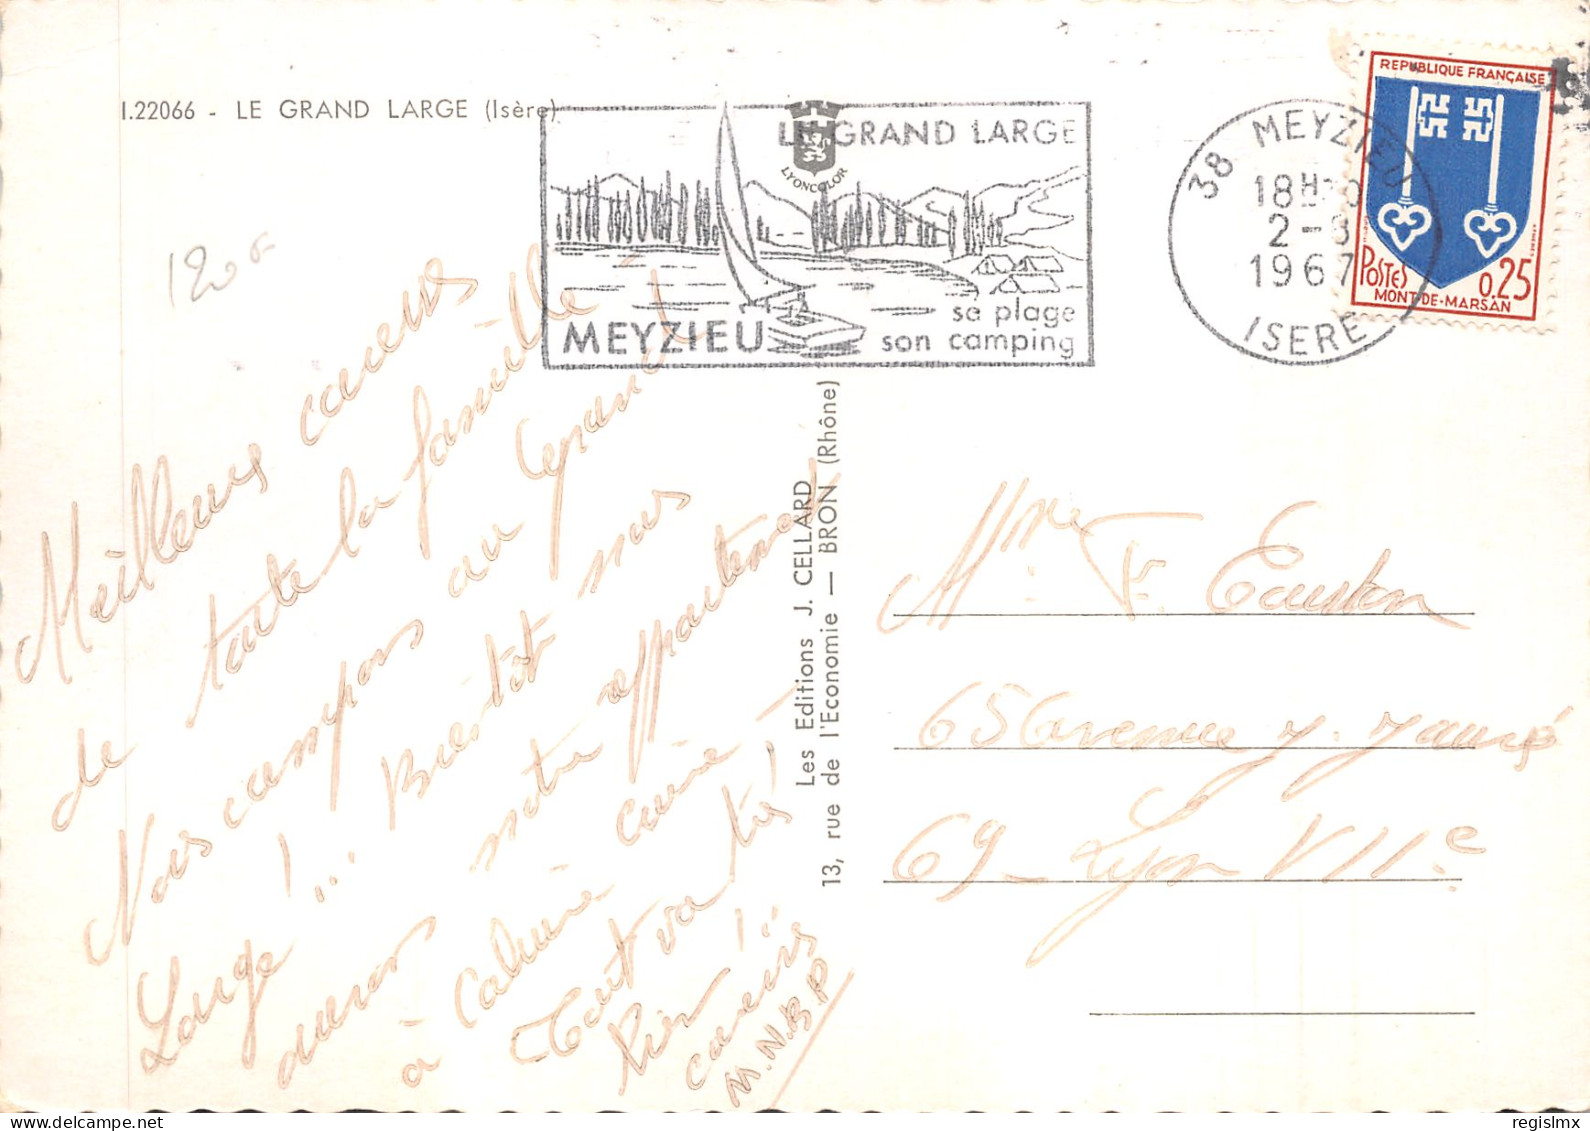 I.22066 - LE GRAND LARGE (Isère)
LE GRAND LARGE
LYONCOLOR
MEYZIEU
sa plage
son camping
38 MEYZIEU
18H
2-8
1967
ISERE
REPUBLIQUE FRANÇAISE
POSTES
0,25
MONT-DE-MARSAN
1200
Meilleurs
de toute la famille
Nous campons au Grand
Large !... Bientôt nous
aurons notre appartement
à Caluire
Tout va très
bien !
M.N.B.P
Les Editions J. CELLARD
13, rue de l'Economie — BRON (Rhône)
Mme F.
65 Avenue J. Jaurés
69 - Lyon VIIe
regislmx
delcampe.net